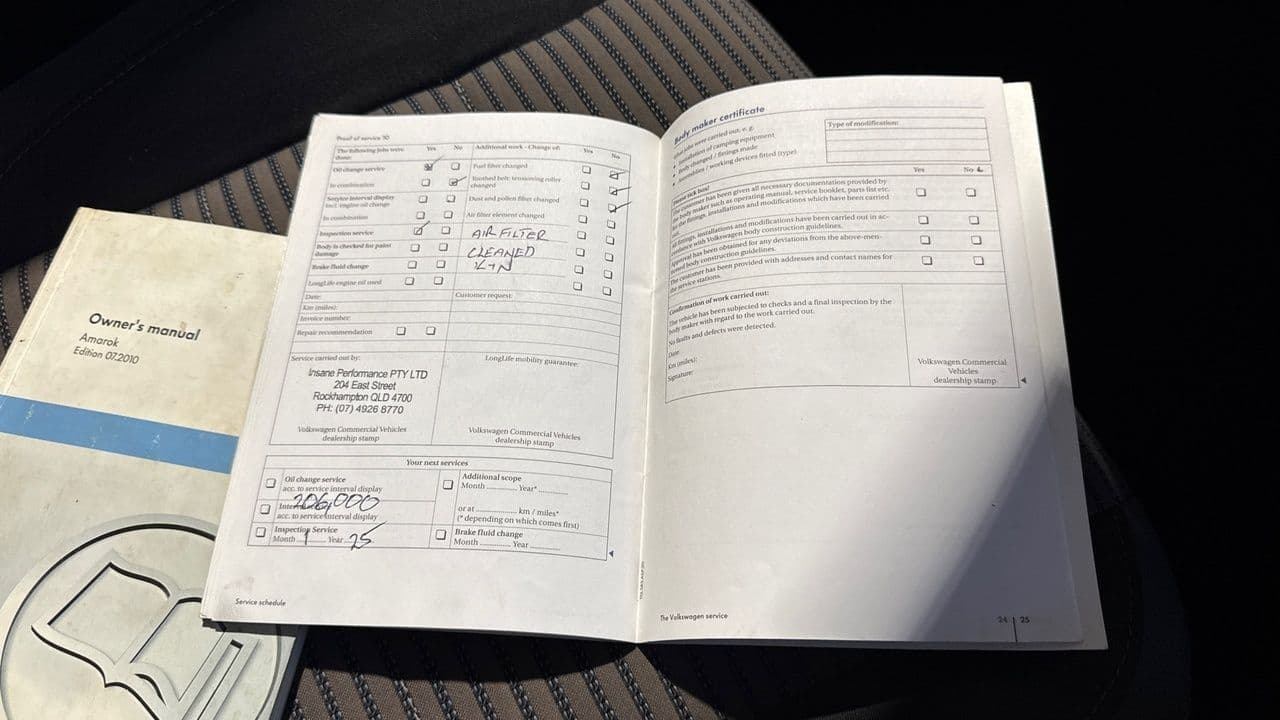 Owner's manual
Amarok
Edition 07.2010
Proof of service 10
The following jobs were done:
Yes
No
Additional work - Change of:
Yes
No
Oil change service
Fuel filter changed
In combination
Toothed belt, tensioning roller changed
Service interval display incl. engine oil change
Dust and pollen filter changed
In combination
Air filter element changed
Inspection service
AIR FILTER
Body is checked for paint damage
CLEANED
Brake fluid change
LongLife engine oil used
Date:
Customer request:
Km (miles):
Invoice number:
Repair recommendation
Service carried out by:
LongLife mobility guarantee:
Insane Performance PTY LTD
204 East Street
Rockhampton QLD 4700
PH: (07) 4926 8770
Volkswagen Commercial Vehicles
dealership stamp
Volkswagen Commercial Vehicles
dealership stamp
Your next services
Oil change service
acc. to service interval display
206,000
acc. to service interval display
Inspection Service
Month 1 Year 25
Additional scope
Month Year*
or at km / miles*
(*depending on which comes first)
Brake fluid change
Month Year
Service schedule
Body maker certificate
jobs were carried out, e. g.
installation of camping equipment
Body changed / fittings made
Assemblies / working devices fitted (type)
Type of modification:
Please tick box!
Yes
No
The customer has been given all necessary documentation provided by
the body maker such as operating manual, service booklet, parts list etc.
for the fittings, installations and modifications which have been carried
out.
All fittings, installations and modifications have been carried out in ac-
cordance with Volkswagen body construction guidelines.
Approval has been obtained for any deviations from the above-men-
tioned body construction guidelines.
The customer has been provided with addresses and contact names for
the service stations.
Confirmation of work carried out:
The vehicle has been subjected to checks and a final inspection by the
body maker with regard to the work carried out.
No faults and defects were detected.
Date:
Km (miles):
Signature:
Volkswagen Commercial
Vehicles
dealership stamp
The Volkswagen service
24 | 25